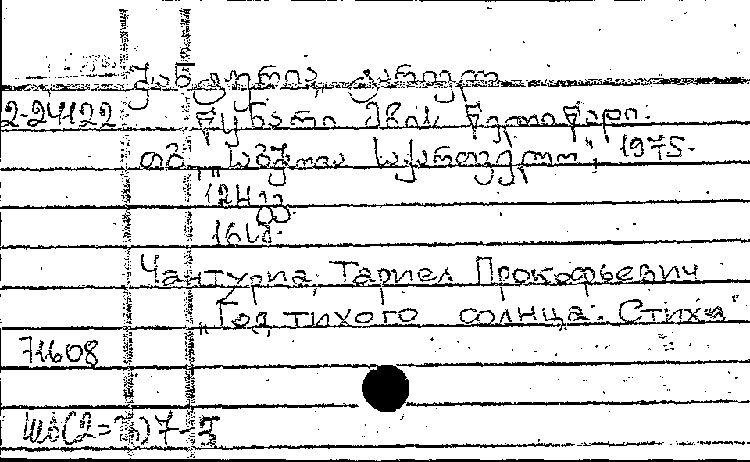 ჭანტურია, ტარიელ
2-24122 წყნარი მზის წელიწადი.
თბ. „საბჭოთა საქართველო", 1975.
124 გვ.
Чантурия, Тариел Прокофьевич
„Год тихого солнца". Стихи
71608